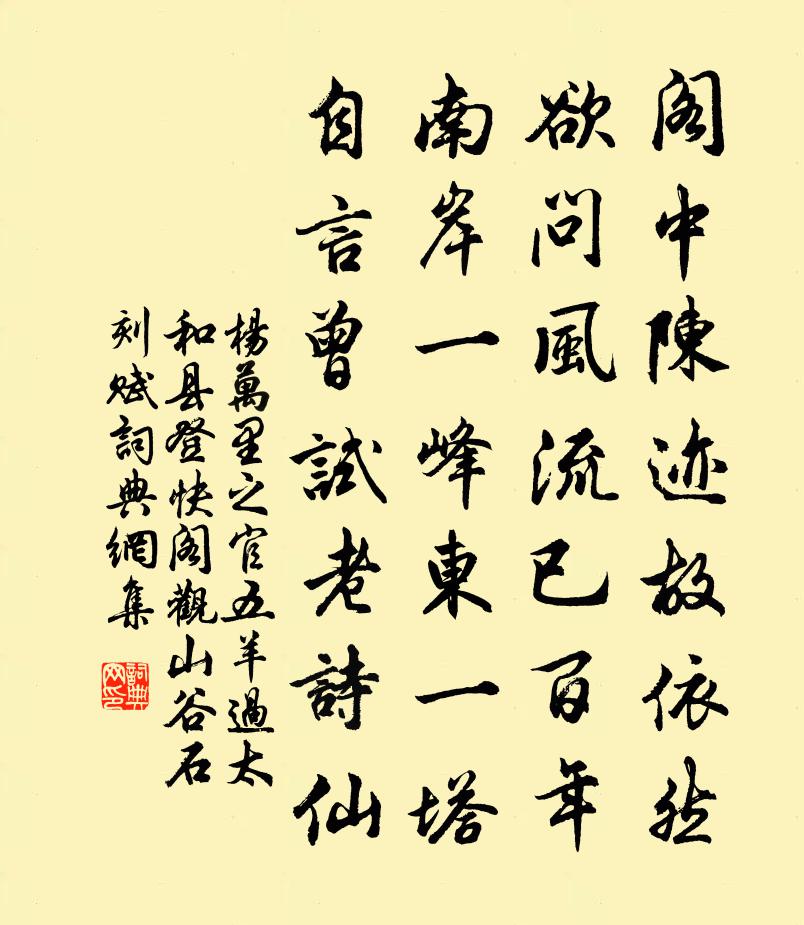 閣中陳迹故依然
欲問風流已百年
南岸一峰東一塔
自言曾試老詩仙
楊萬里之官五羊過太
和县登快阁觀山谷石
刻赋詞典網集
詞典网印